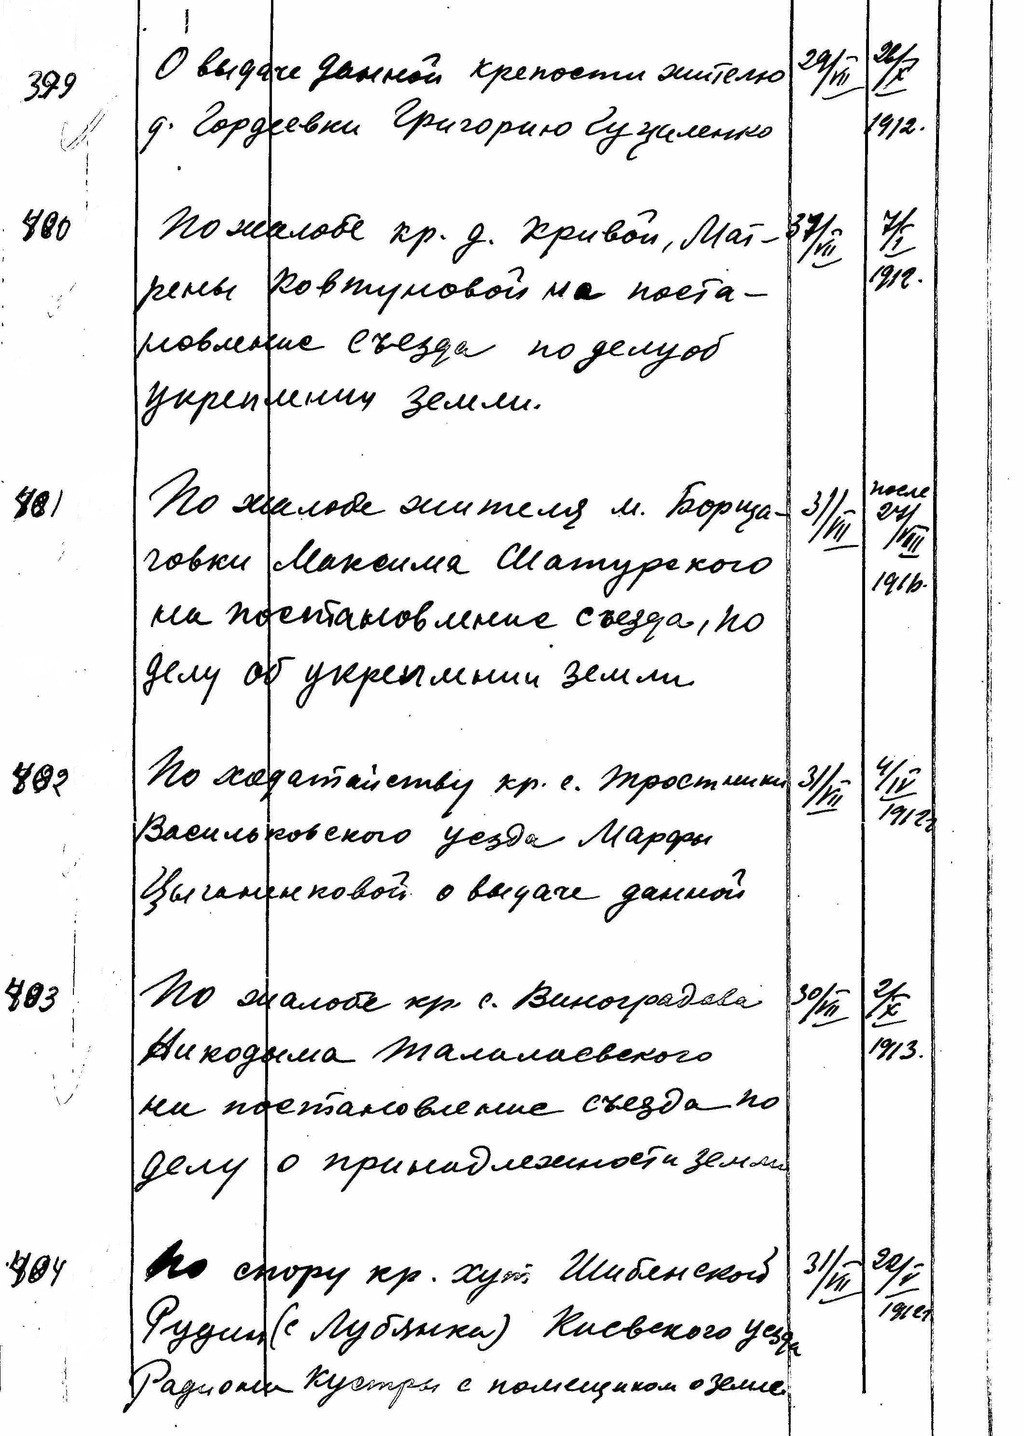 399 О выдаче данной крепости жителю 29/VII 26/X
д. Гордеевки Григорию Гузиленко 1912.
400 По жалобе кр. д. Кривой, Мат- 7/I
рены Ковтуновой на поста- 1912.
новление съезда по делу об
укреплении земли.
401 По жалобе жителя м. Борща- 31/VII после 27/VIII
говки Максима Шатурского
на постановление съезда, по
делу об укреплении земли
402 По ходатайству кр. с. Тростинки 31/VII 4/IV
Васильковского уезда Марфы 1912г
Цыганенковой о выдаче данной
403 По жалобе кр с. Виноградова 30/VII 2/X
Никодыма Талалаевского 1913.
на постановление съезда по
делу о принадлежности земли
404 По спору кр. хут Шибенской 31/VII 22/V
Рудни (с Лубянка) Киевского уезда
Радиона Кустры с помещиком о земле.